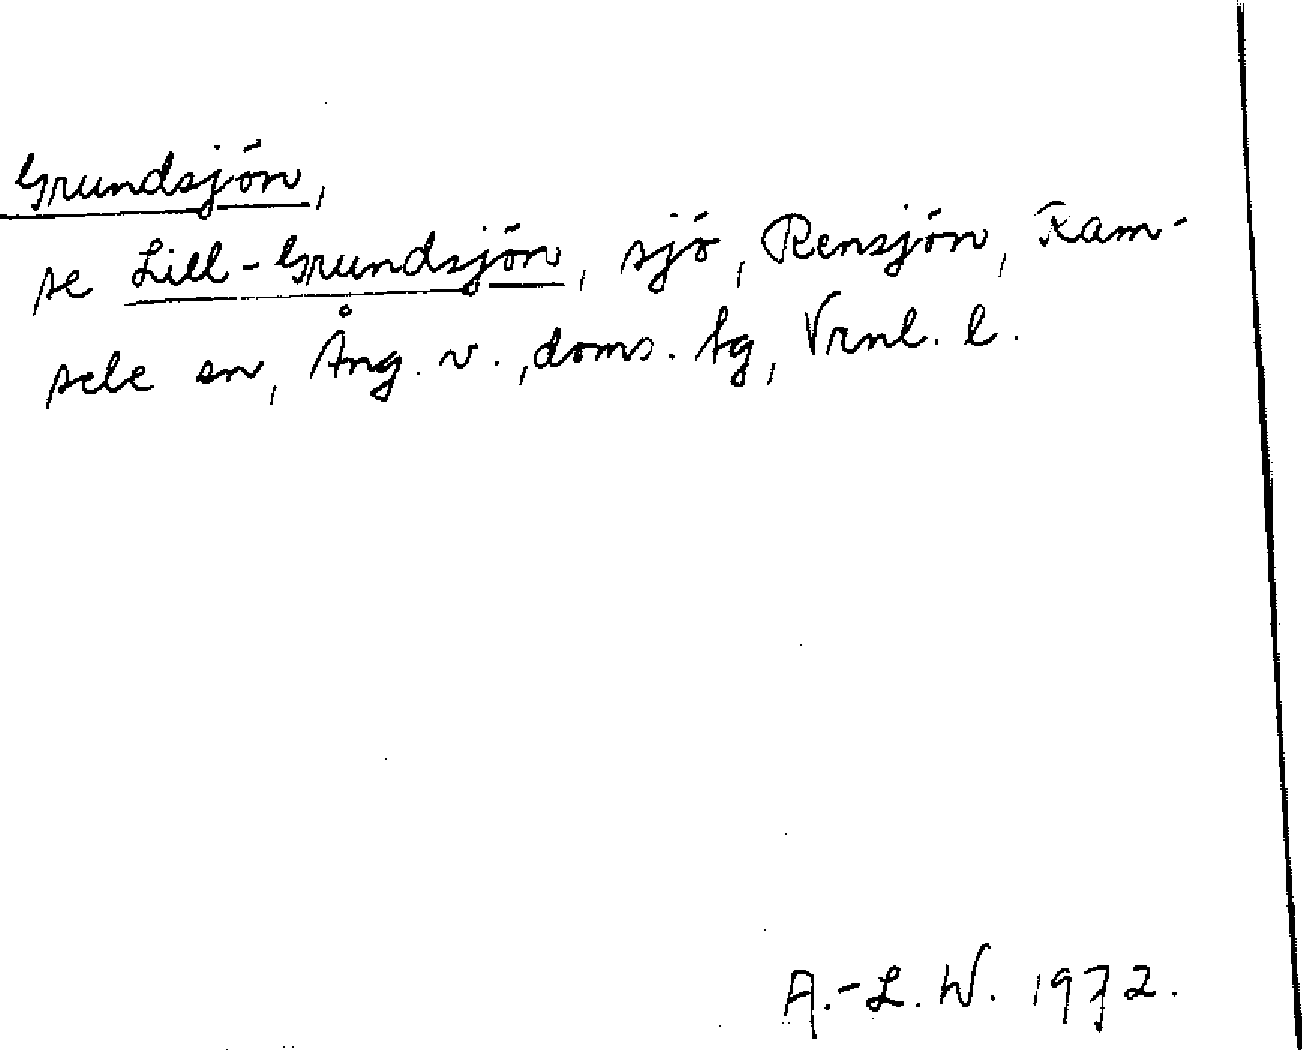 Grundsjön,
se Lill-Grundsjön, sjö, Rensjön, Ram-
sele sn, Ång. v., doms. tg, Vrnl. l.
A.-L. W. 1972.